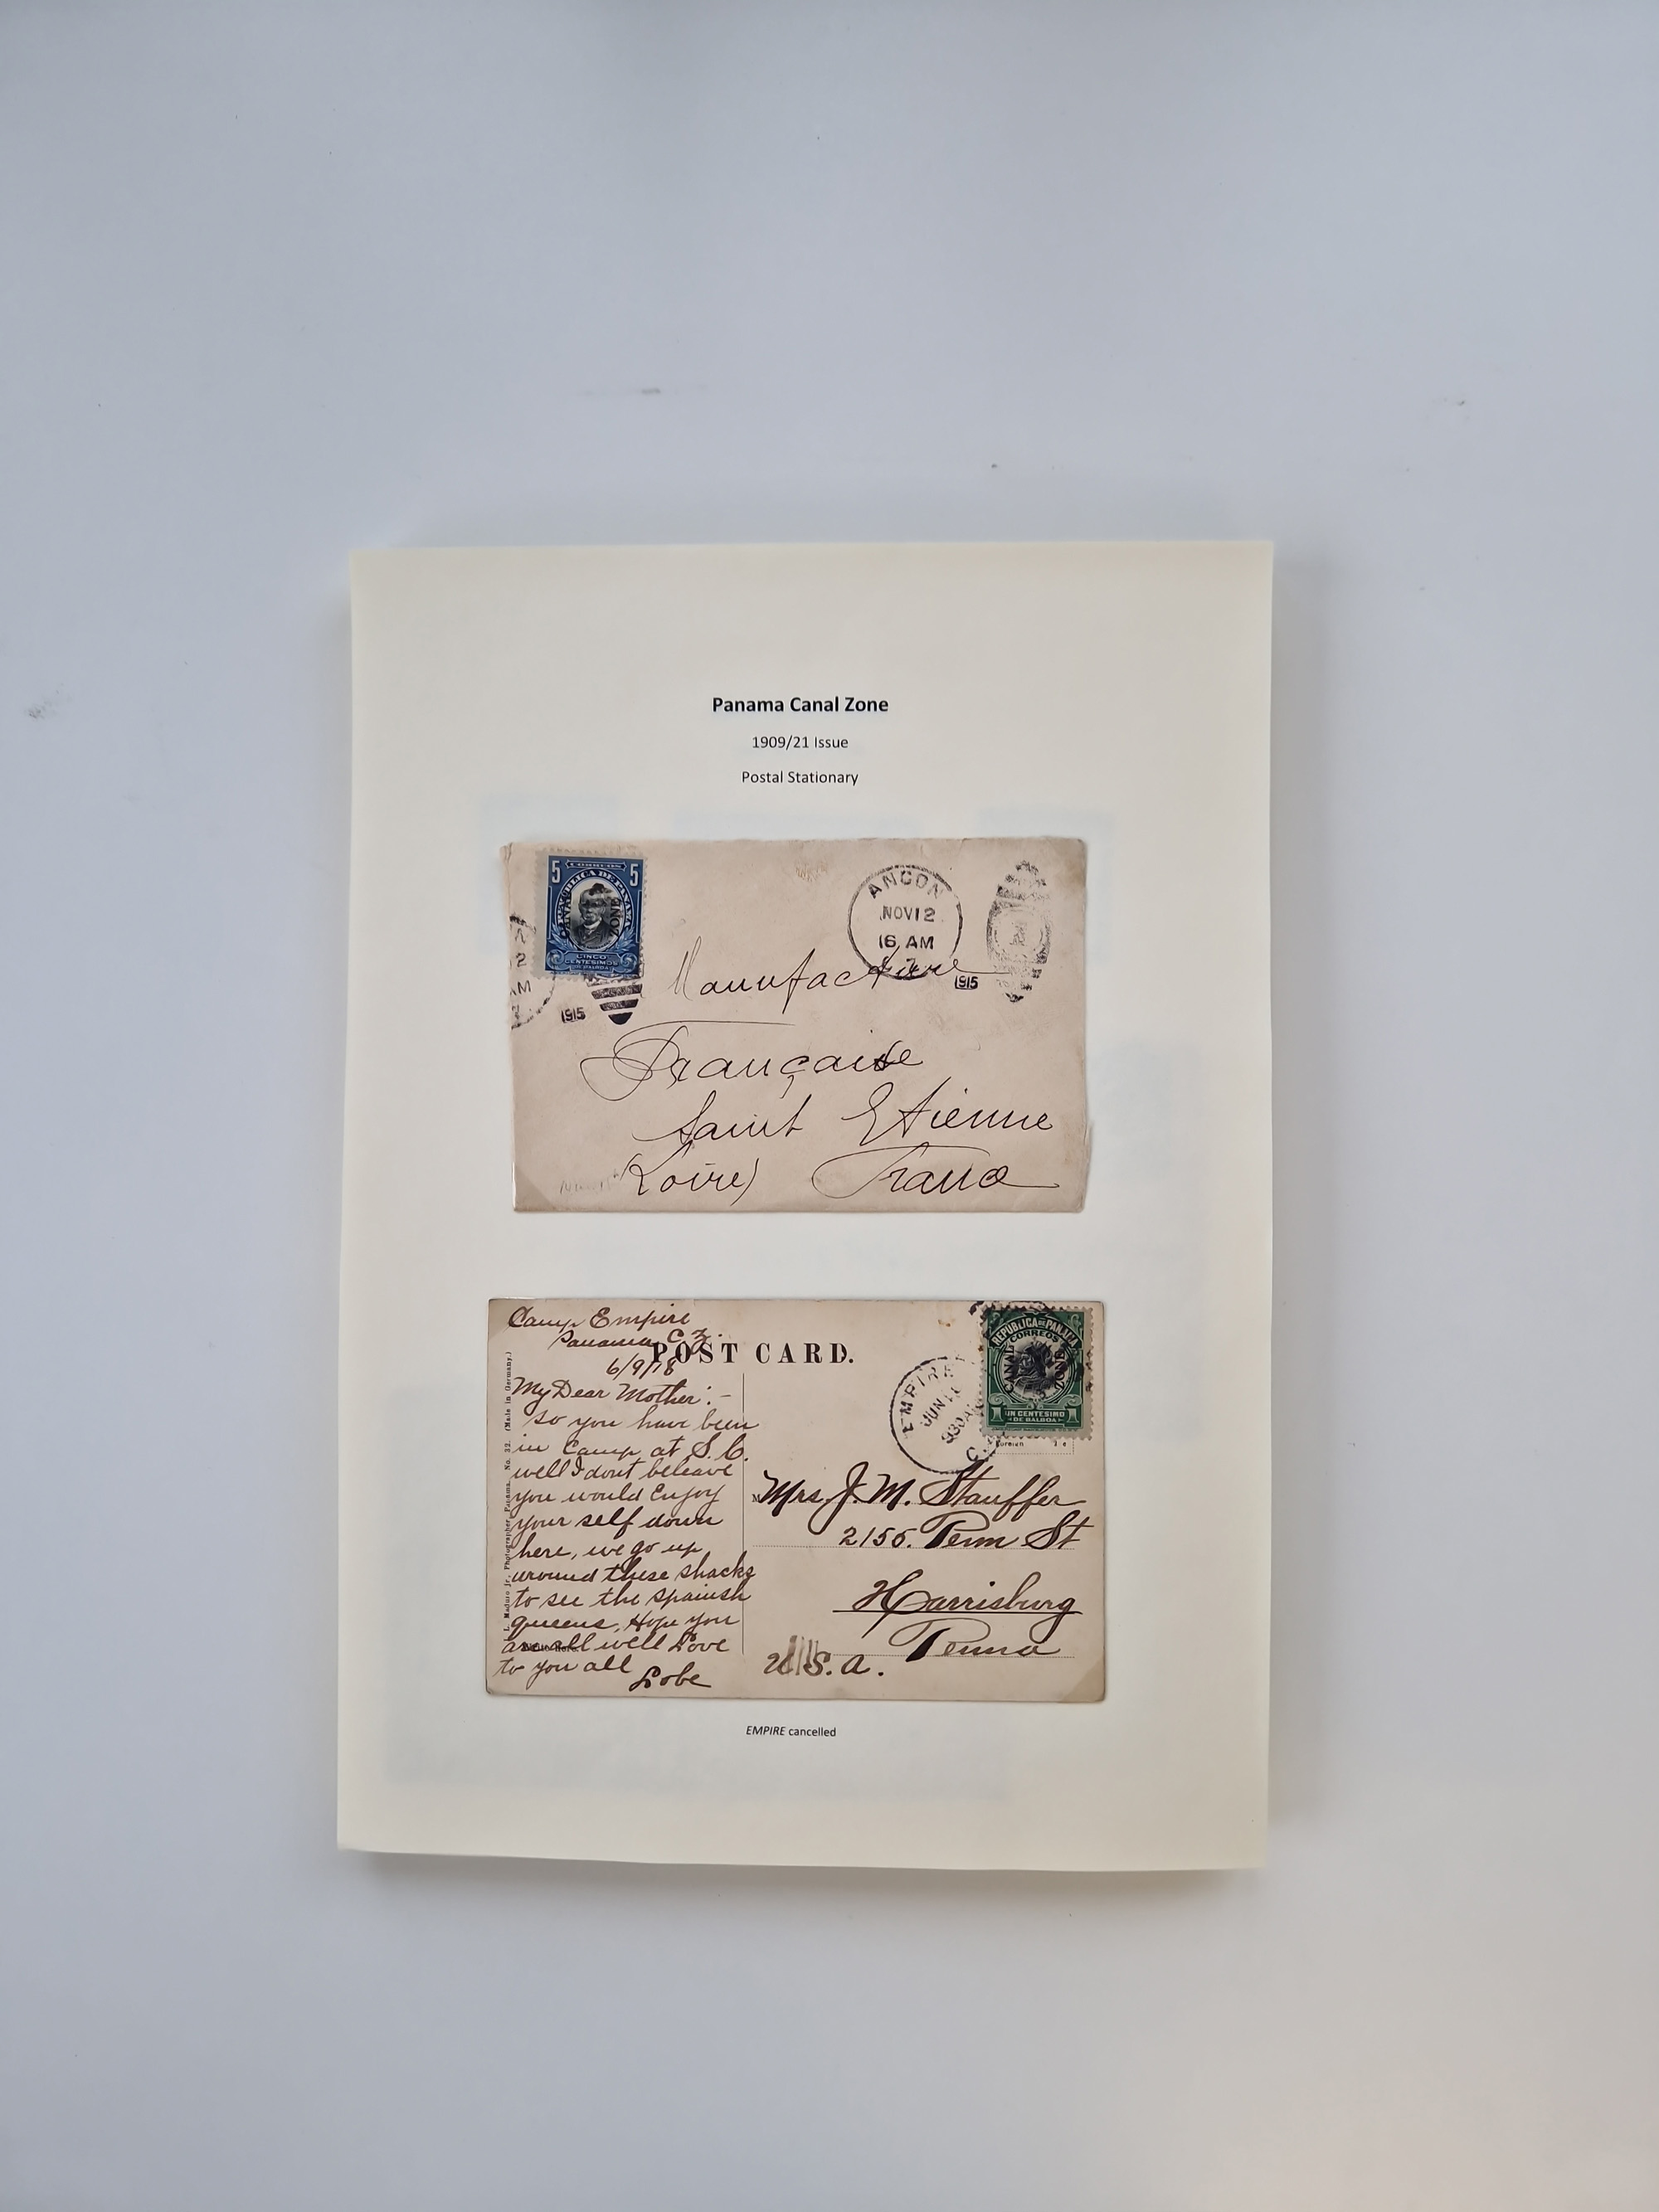 Panama Canal Zone
1909/21 Issue
Postal Stationary
CORREOS
5 5
REPUBLICA DE PANAMA
CANAL ZONE
CINCO
CENTESIMOS
DE BALBOA
ANCON
NOV 12
6 AM
1915
2
AM
1915
Manufacture
Française
Saint Etienne
(Loire) France
Camp Empire
Panama C.Z.
6/9/18
POST CARD.
My Dear Mother:-
so you have been
in Camp at S.C.
well I dont beleave
you would Enjoy
your self down
here, we go up
around these shacks
to see the spanish
queens, Hope you
are all well Love
to you all
Lobe
L. Maduro Jr., Photographer, Panama. No. 32. (Made in Germany.)
REPUBLICA DE PANAMA
CORREOS
CANAL ZONE
1 UN CENTESIMO 1
DE BALBOA
EMPIRE
JUN
930 AM
C.
Foreign 2 c
Mrs. J. M. Stauffer
2155. Penn St
Harrisburg
Penna
U.S.A.
EMPIRE cancelled